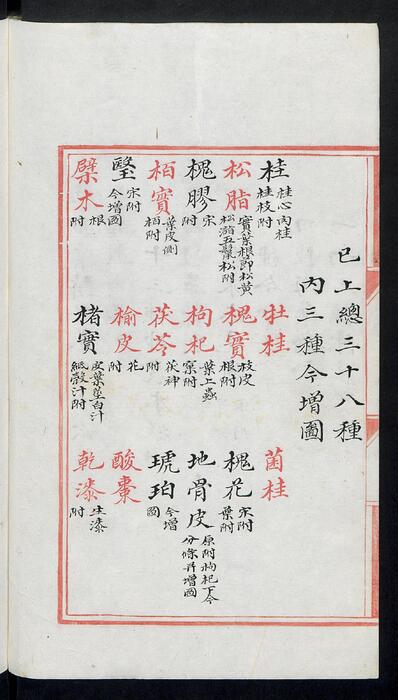 已上總三十八種
內三種今增圖
桂 桂心肉桂桂枝附 牡桂 菌桂
松脂 實葉根節松黃松五鬣松附 槐實 枝皮根附 槐花 宋附葉附
槐膠 宋附 枸杞 葉上蟲窠附 地骨皮 原附枸杞下今分條并增圖
栢實 葉皮側栢附 茯苓 茯神附 琥珀 今增圖
瑿 宋附今增圖 榆皮 花附 酸棗
檗木 根附 楮實 皮葉莖白汁紙殼汁附 乾漆 生漆附